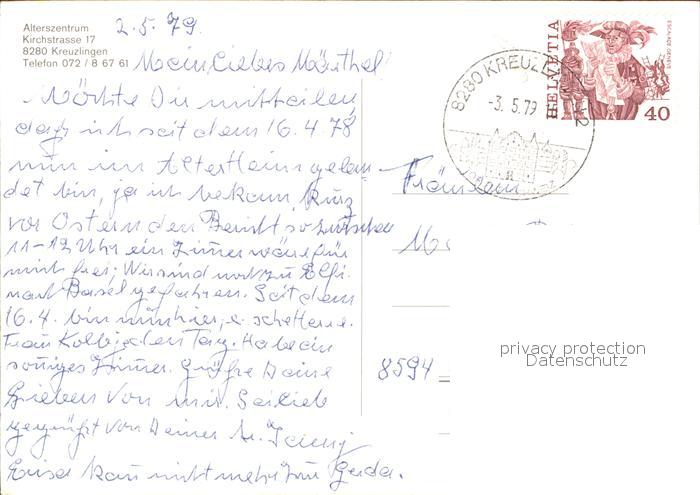 Alterszentrum
Kirchstrasse 17
8280 Kreuzlingen
Telefon 072 / 8 67 61
2.5.79.
Mein liebes
Möchte Dir mitteilen,
daß ich seit dem 16.4.78
nun im Altersheim gelan-
det bin, ja ich bekam kurz
vor Ostern den Bericht so zwischen
11-12 Uhr ein Zimer wäre für
mich frei; Wir sind noch zu
nach Basel gefahren. Seit dem
16.4. bin nun hier,
Frau Kolb jeden Tag. Habe ein
soniges Zimer. Grüße Deine
Lieben von mir. Sei lieb
gegrüßt von Deiner
kan nicht mehr zu
8280 KREUZLINGEN 2
-3.5.79
HELVETIA
ESCALADE GENÈVE
40
Fräulein
8594
privacy protection
Datenschutz